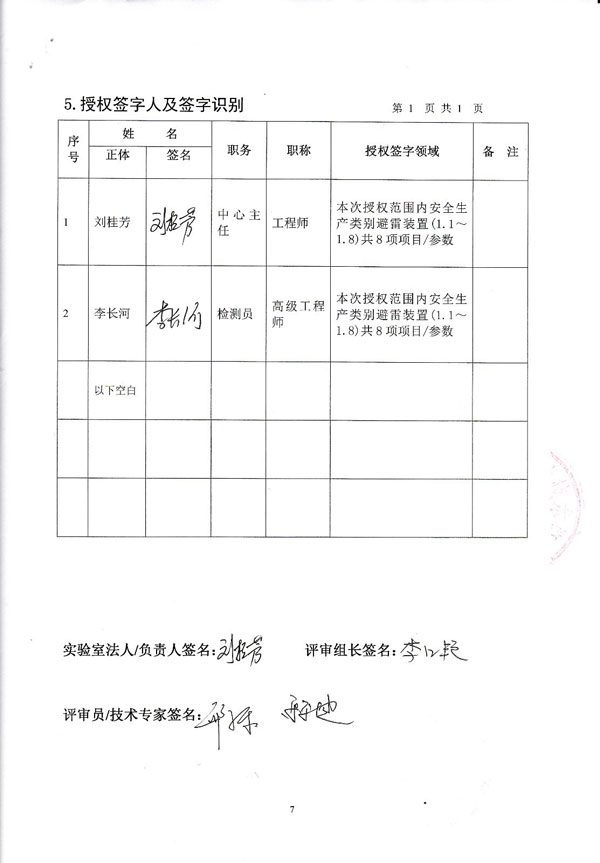 5.授权签字人及签字识别
第 1 页 共 1 页
序号 姓名 职务 职称 授权签字领域 备注
正体 签名
1 刘桂芳 刘桂芳 中心主任 工程师 本次授权范围内安全生产类别避雷装置(1.1～1.8)共8项项目/参数
2 李长河 李长河 检测员 高级工程师 本次授权范围内安全生产类别避雷装置(1.1～1.8)共8项项目/参数
以下空白
实验室法人/负责人签名:刘桂芳 评审组长签名:
评审员/技术专家签名:
7